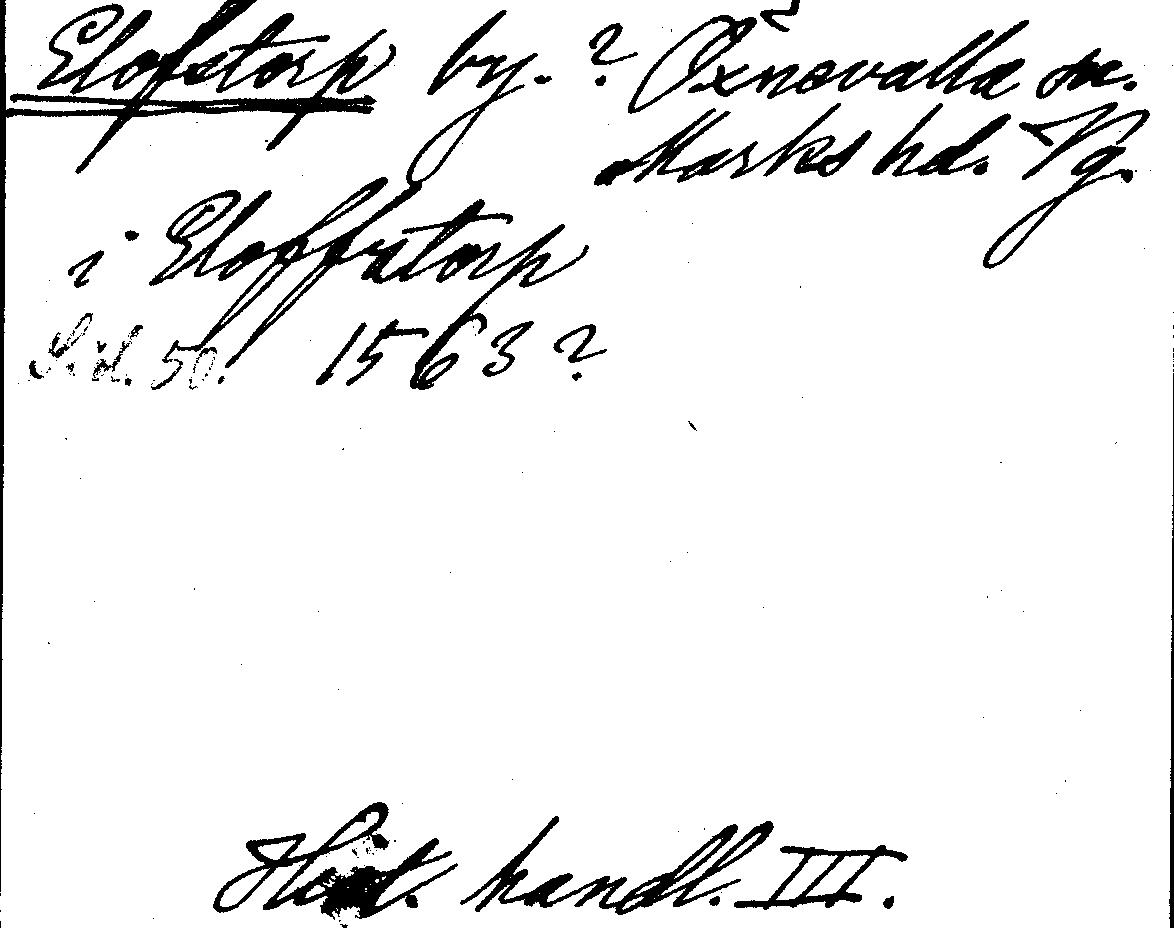 Elofstorp by. ? Öxnevalla sn.
Marks hd. Vg.
i Eloffstorp
Sid. 50. 1563 ?
Hist. handl. III.